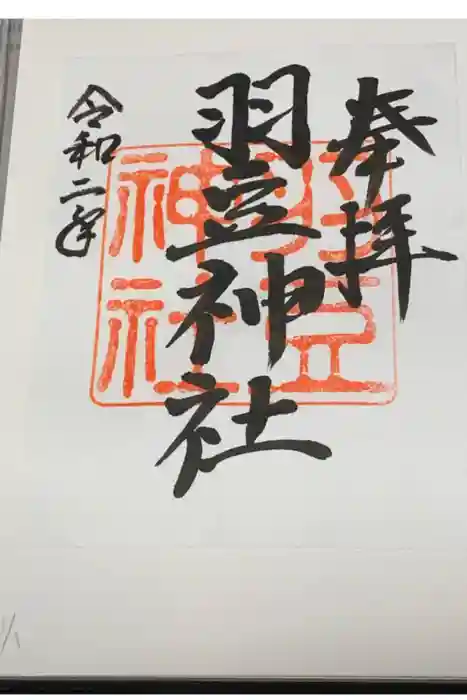 奉拝
羽豆神社
令和二年
羽豆
神社